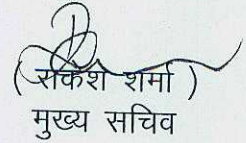 ( राकेश शर्मा )
मुख्य सचिव